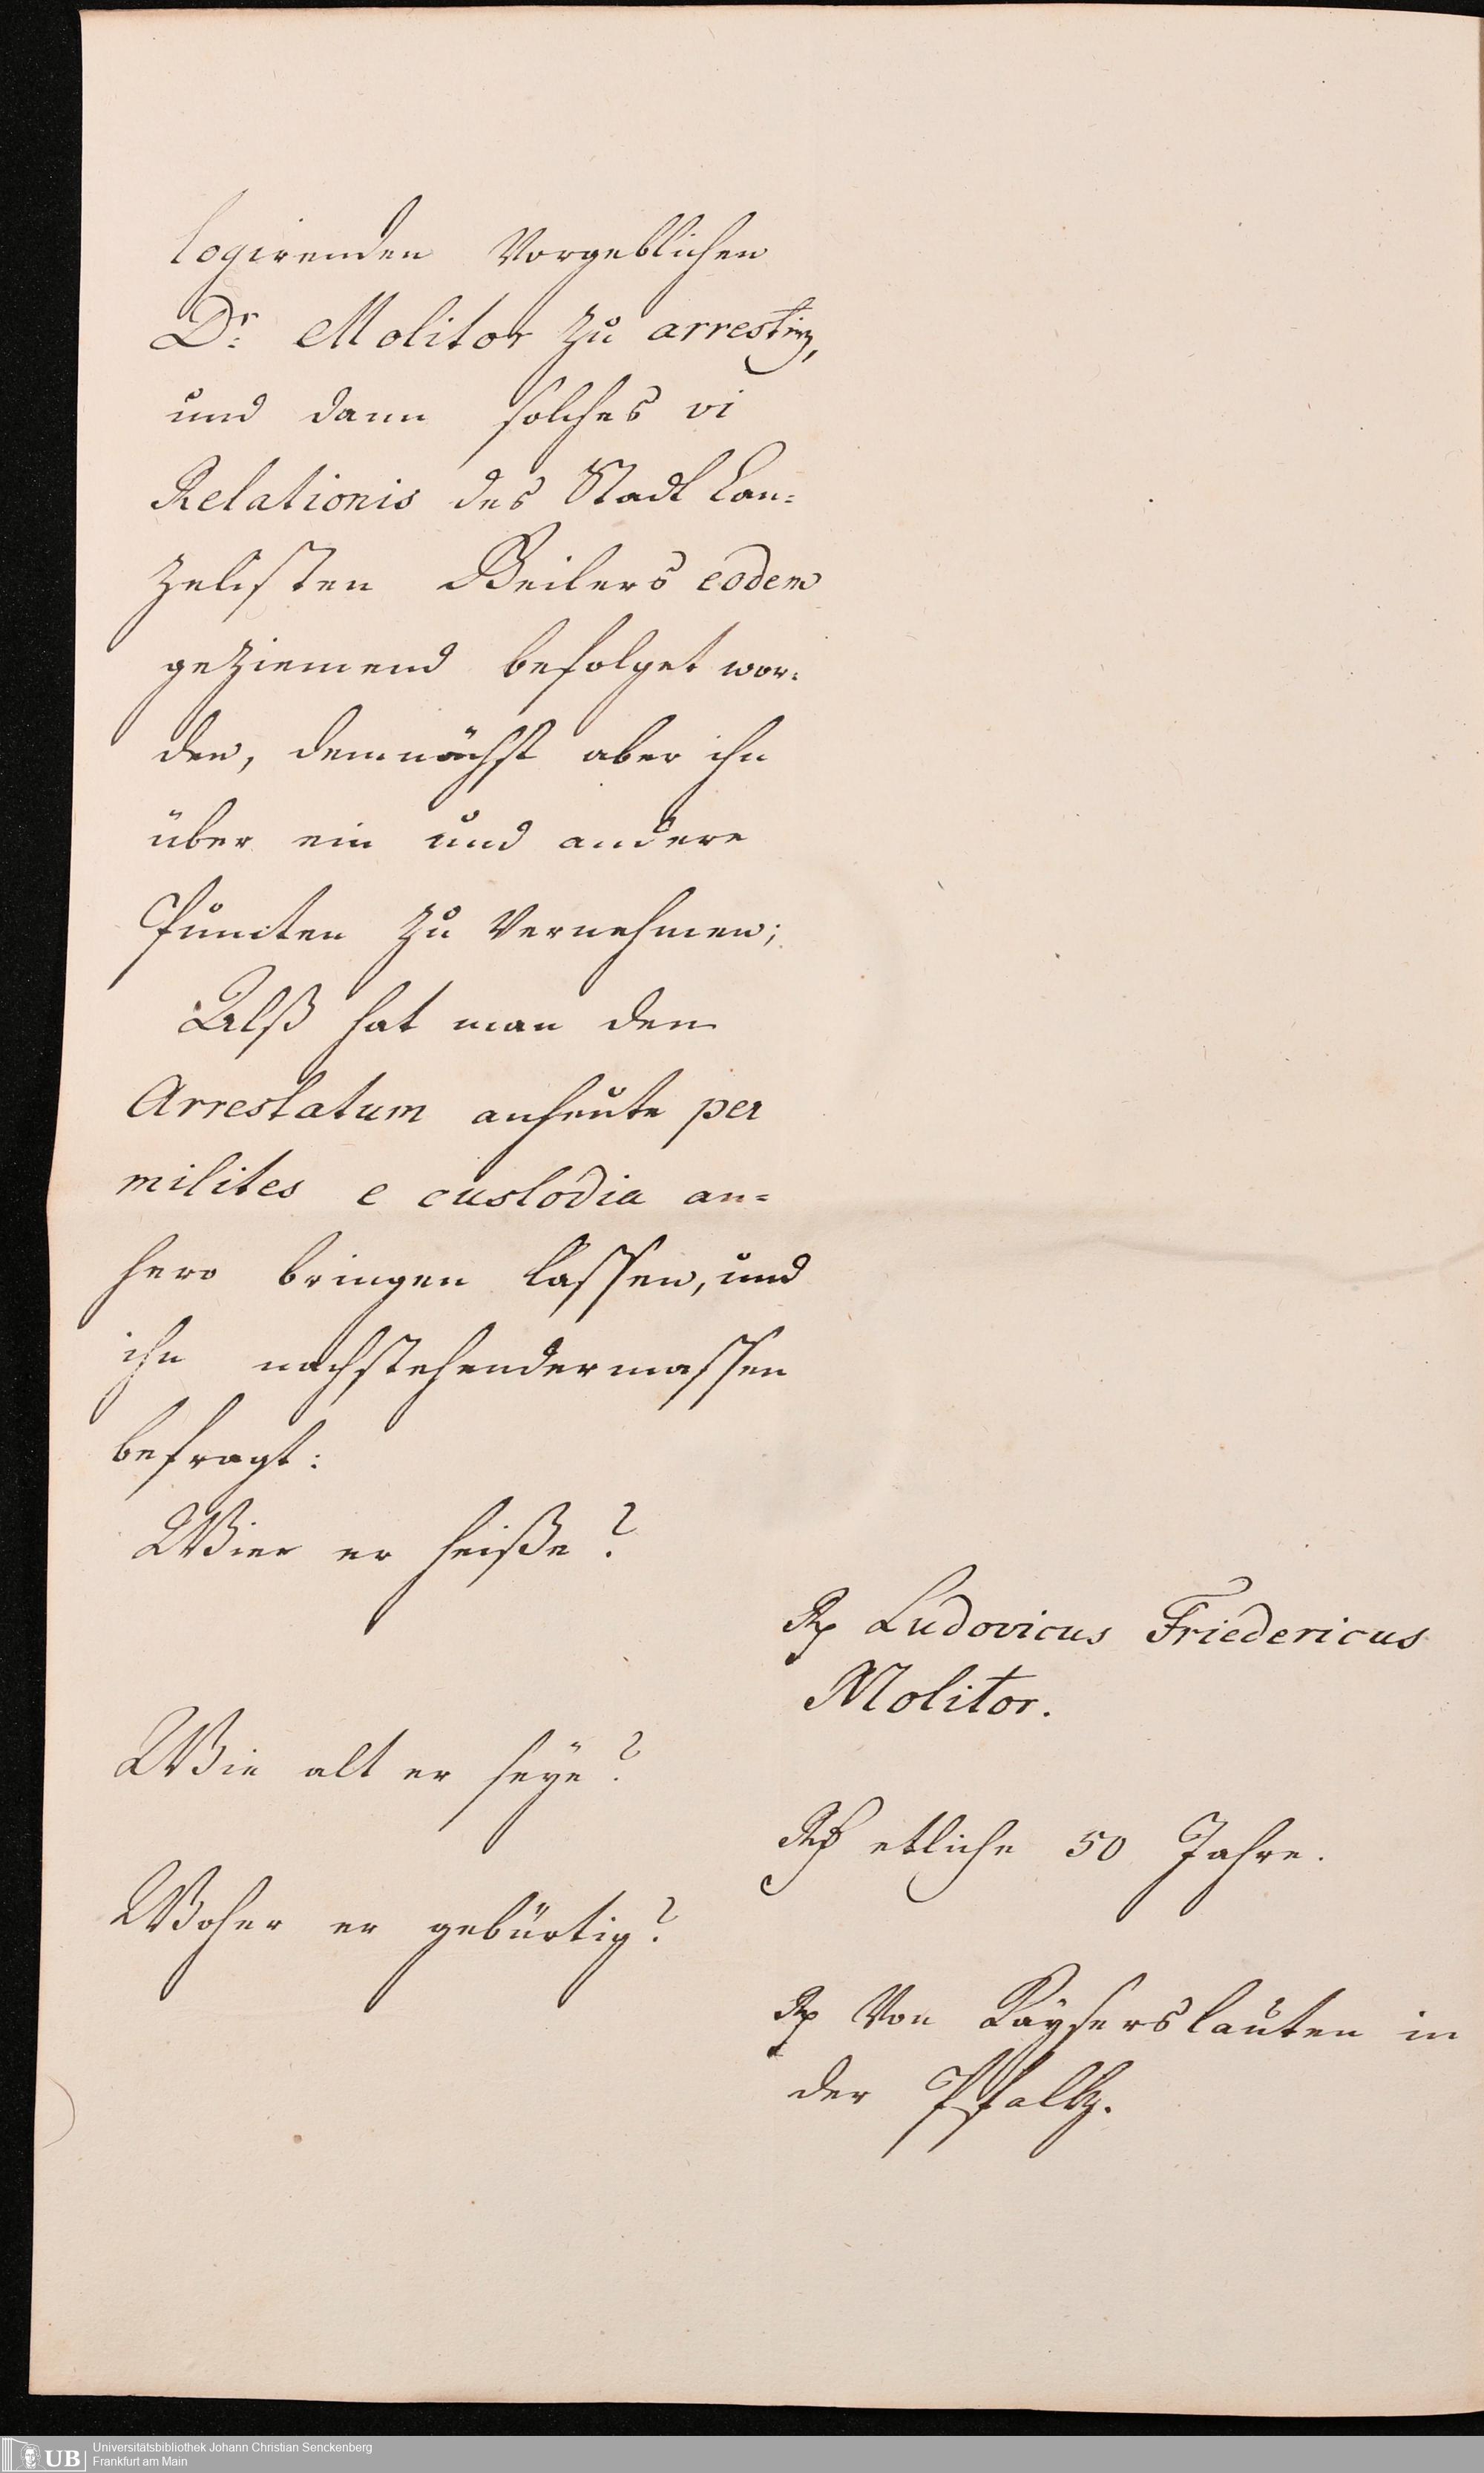 logirenden Vorgeblichen
Dr: Molitor zu arrestirn,
und dann solches vi
Relationis des Stadt Can=
zelisten Beilers eodem
geziemend befolget wor=
den, demnächst aber ihn
über ein und andere
Puncten zu Vernehmen;
Alß hat man den
Arrestatum anheute per
milites e custodia an=
hero bringen lassen, und
ihn nachstehendermassen
befragt:
Wier er heiße?
Rp Ludovicus Friedericus
Molitor.
Wie alt er seye?
Rp etliche 50 Jahre.
Woher er gebürtig?
Rp Von Kayserslauten in
der Pfaltz.
UB
Universitätsbibliothek Johann Christian Senckenberg
Frankfurt am Main